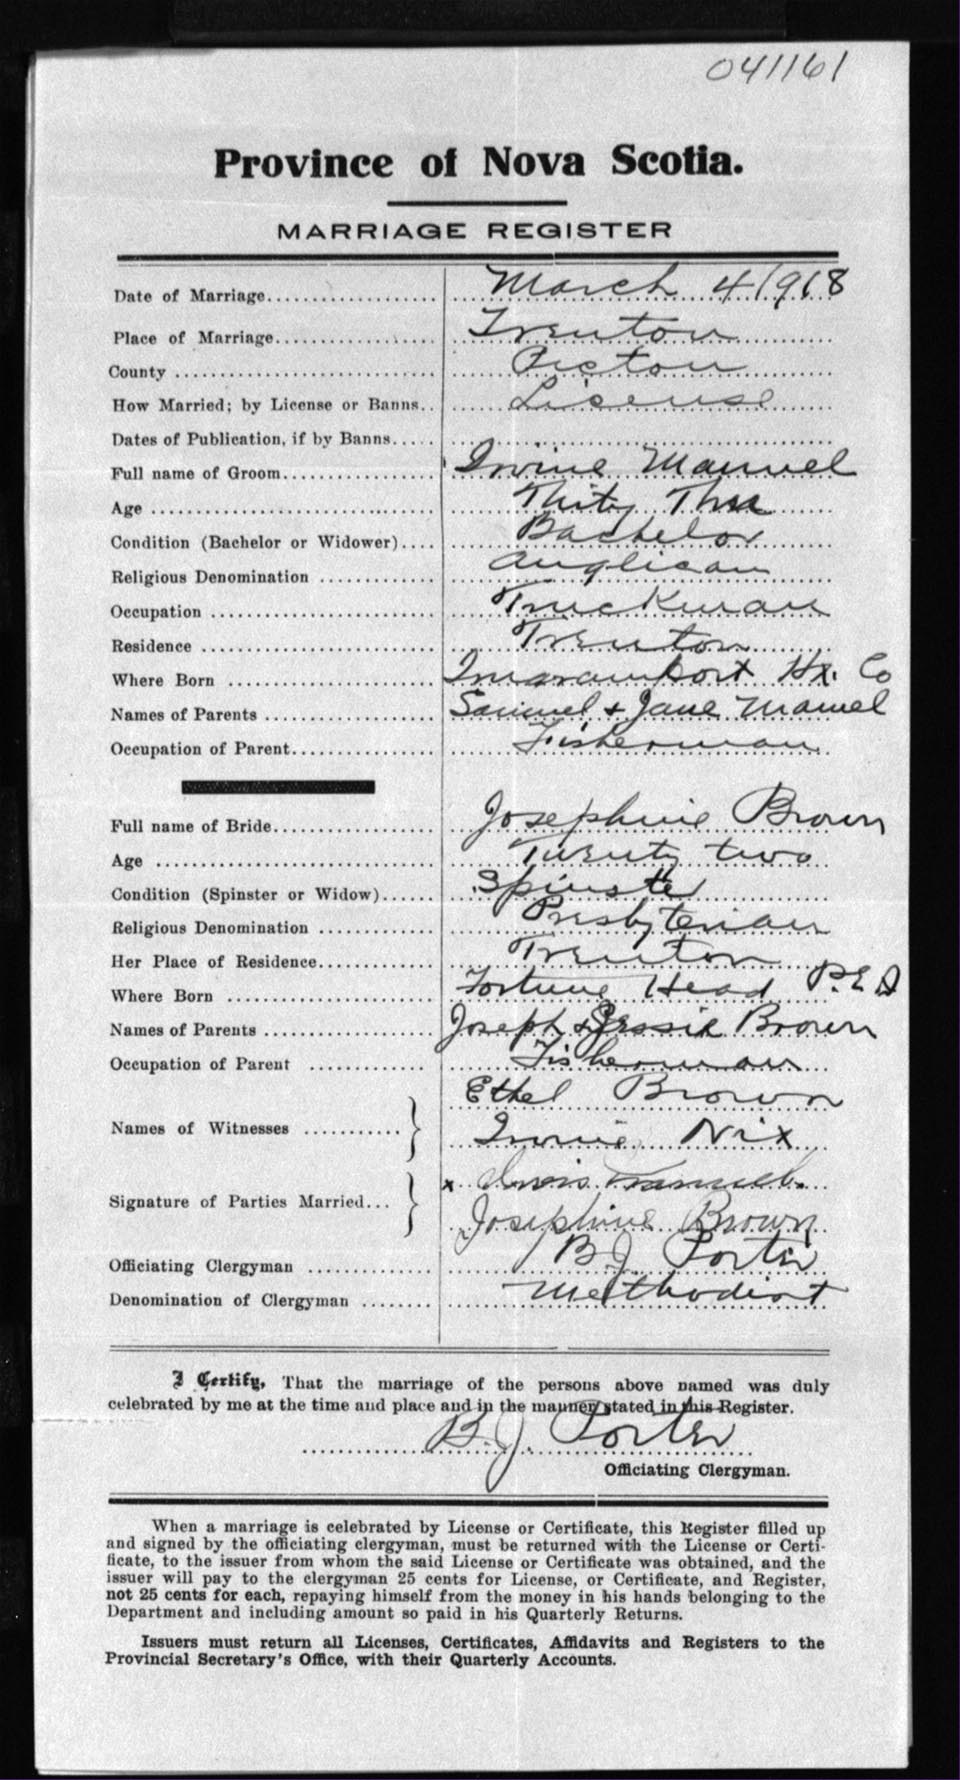 041161
Province of Nova Scotia.
MARRIAGE REGISTER
Date of Marriage.................... March 4 1918
Place of Marriage................... Trenton
County .............................. Pictou
How Married; by License or Banns.. License
Dates of Publication, if by Banns.....
Full name of Groom.................. Irvine Manuel
Age .................................. Thirty Three
Condition (Bachelor or Widower).... Bachelor
Religious Denomination ............. Anglican
Occupation .......................... Truckman
Residence ........................... Trenton
Where Born ........................ Hx. Co
Names of Parents ................... Samuel & Jane Manuel
Occupation of Parent................ Fisherman
Full name of Bride.................. Josephine Brown
Age ................................. Twenty two
Condition (Spinster or Widow)...... Spinster
Religious Denomination ............. Presbyterian
Her Place of Residence............. Trenton
Where Born ........................ Fortune Head P.E.I
Names of Parents ................... Joseph & Jessie Brown
Occupation of Parent ............. Fisherman
Ethel Brown
Names of Witnesses ........... } Irvine Nix
x Manuel
Signature of Parties Married... } Josephine Brown
Officiating Clergyman .............. B J Porter
Denomination of Clergyman ........ Methodist
I Certify, That the marriage of the persons above named was duly
celebrated by me at the time and place and in the manner stated in this Register.
B. J. Porter
Officiating Clergyman.
When a marriage is celebrated by License or Certificate, this Register filled up
and signed by the officiating clergyman, must be returned with the License or Certi-
ficate, to the issuer from whom the said License or Certificate was obtained, and the
issuer will pay to the clergyman 25 cents for License, or Certificate, and Register,
not 25 cents for each, repaying himself from the money in his hands belonging to the
Department and including amount so paid in his Quarterly Returns.
Issuers must return all Licenses, Certificates, Affidavits and Registers to the
Provincial Secretary's Office, with their Quarterly Accounts.